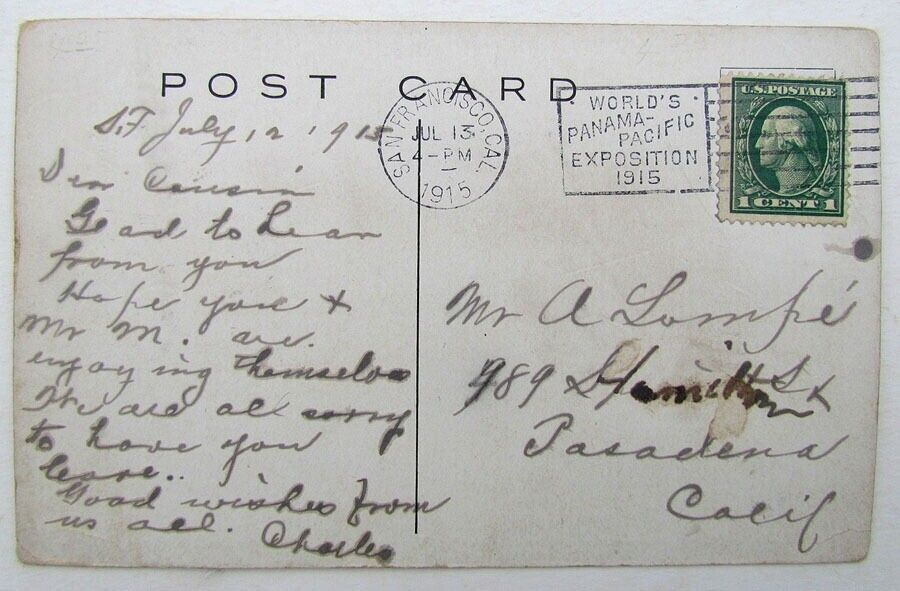 POST CARD
S.F July 12, 1915
Dear Cousin
Glad to hear
from you
Hope you &
Mr M. are
enjoying themselves
We are all sorry
to have you
leave..
Good wishes from
us all.
Charles
SAN FRANCISCO, CAL.
JUL 13
4-PM
1915
WORLD'S
PANAMA-
PACIFIC
EXPOSITION
1915
U.S. POSTAGE
1 CENT 1
Mr A Lompé
989 St
Pasadena
Calif